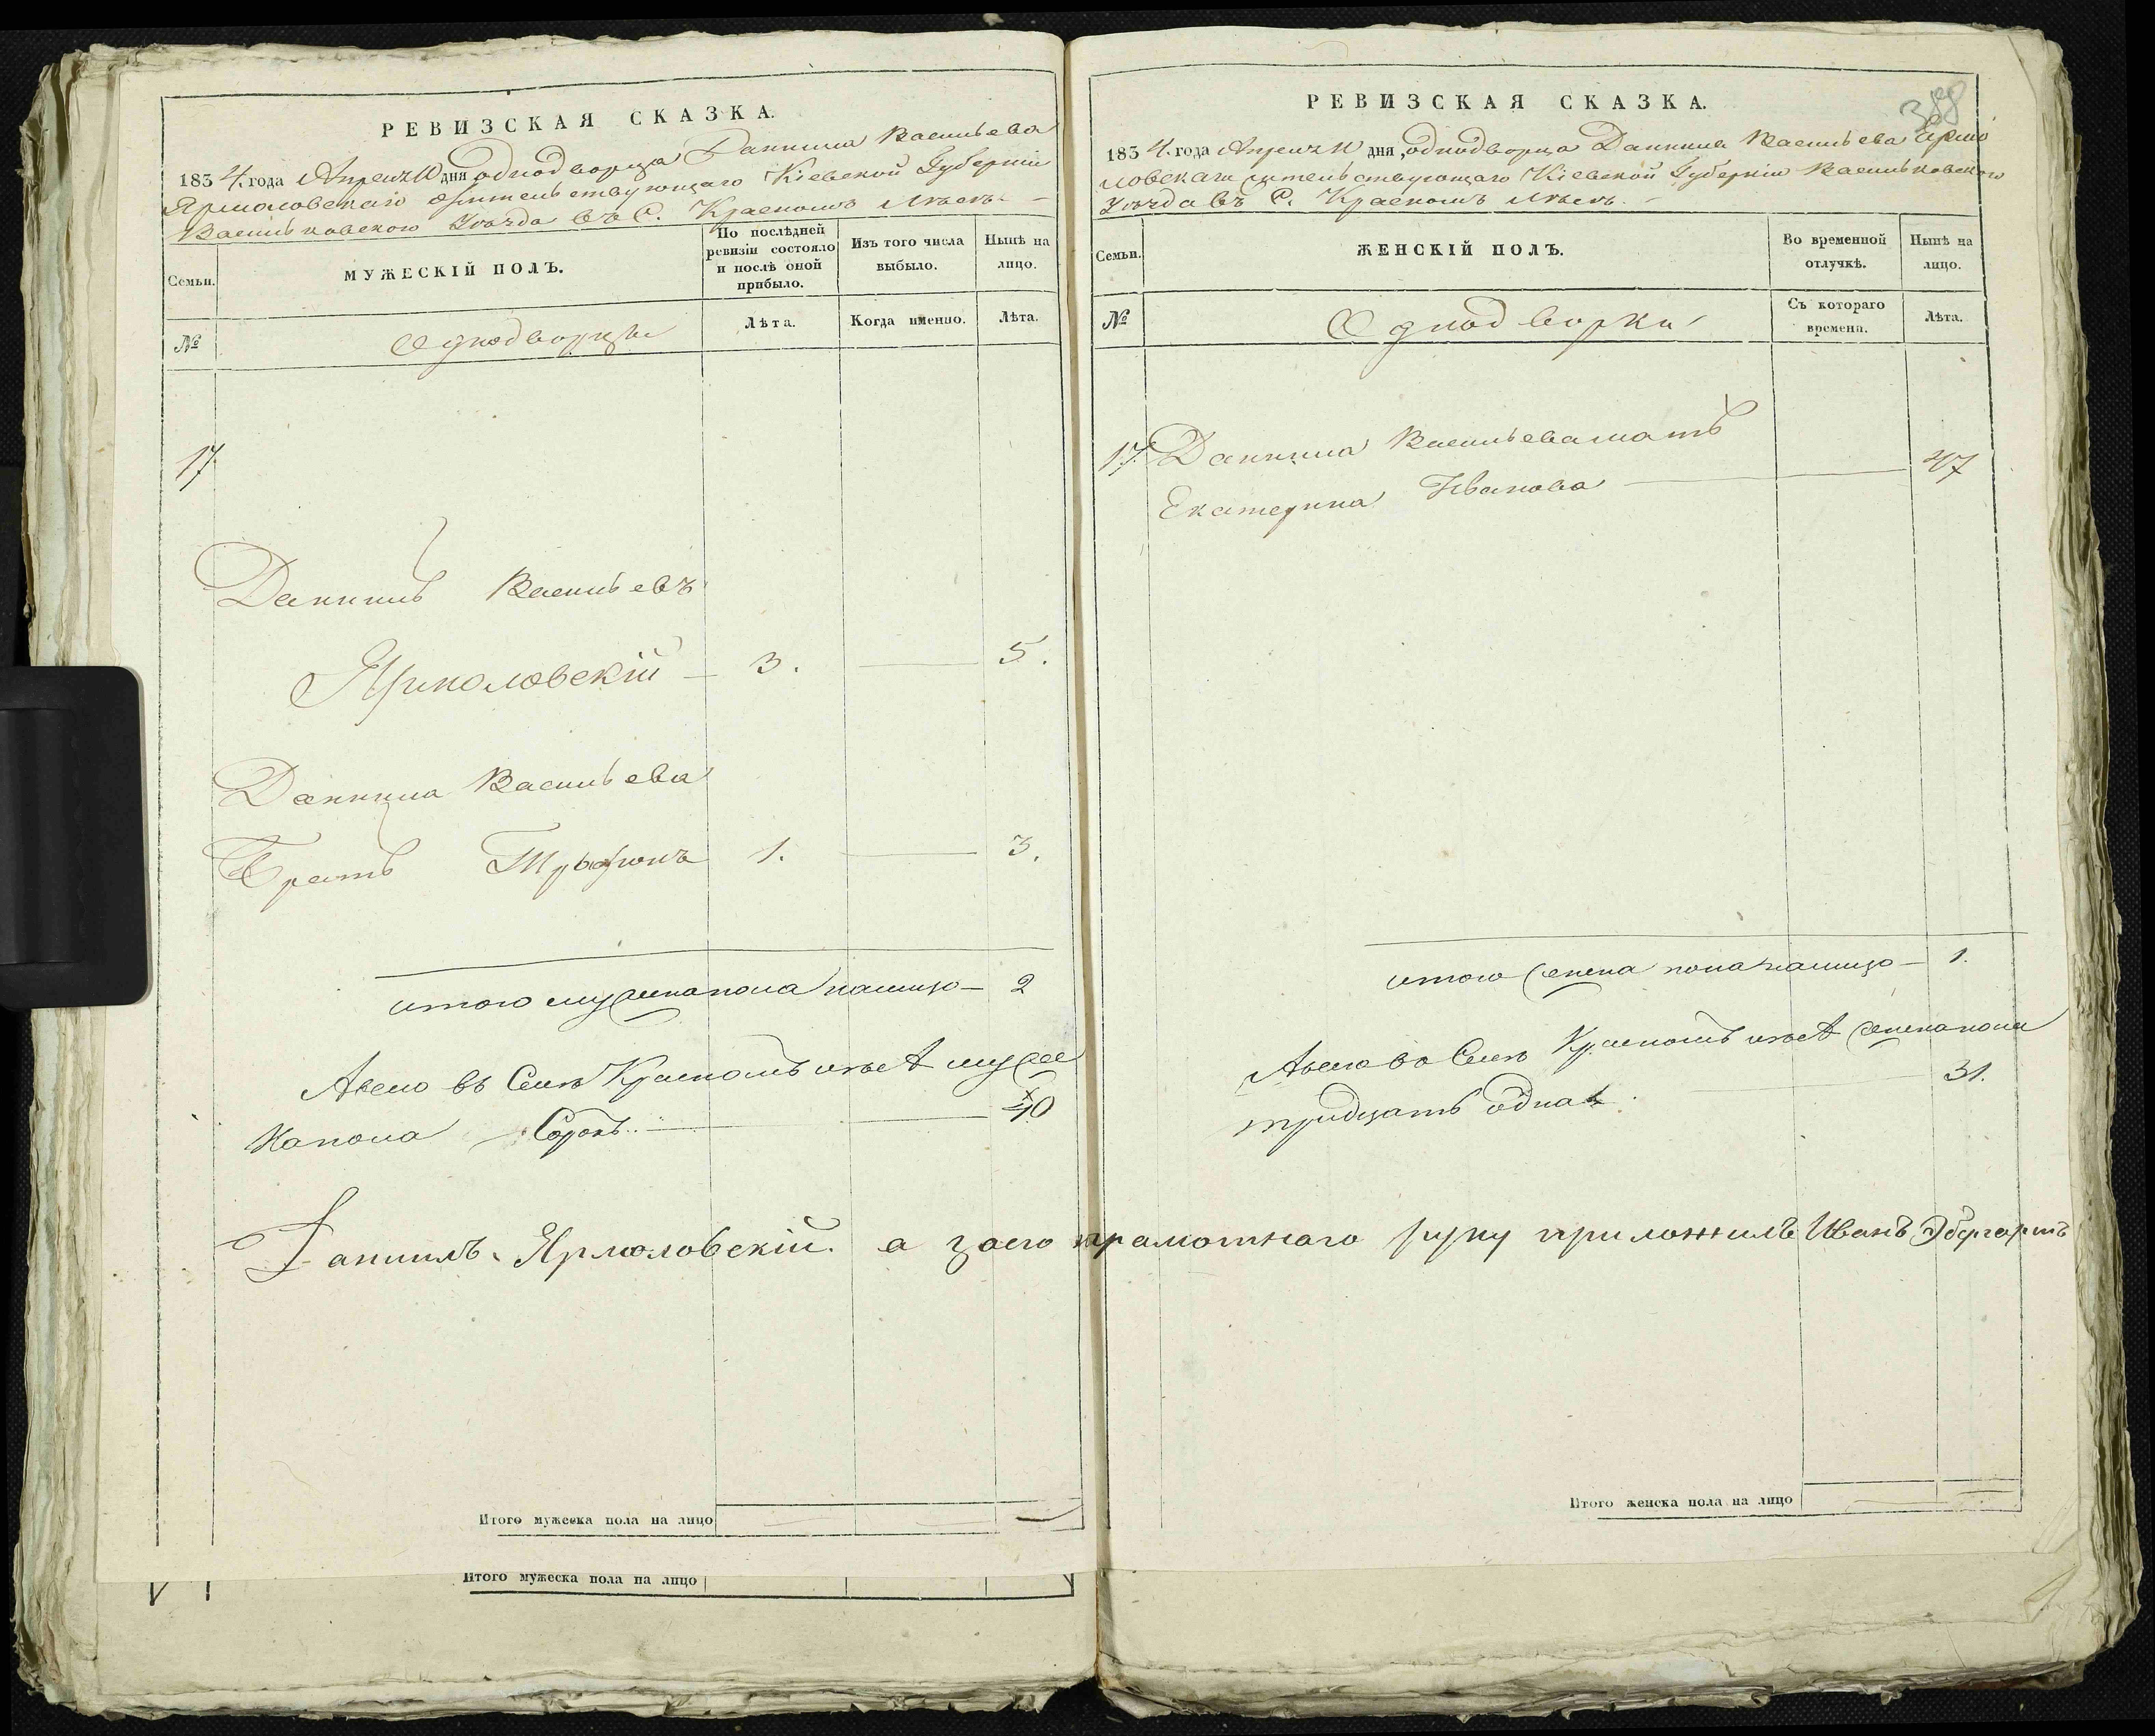 РЕВИЗСКАЯ СКАЗКА.
1834. года Апреля 10 дня однодворца Даниила Васильева
Ярмоловскаго жительствующаго Кіевской Губерніи
Васильковскаго Уѣзда въ С. Красномъ Лѣсѣ.
Семьи.
МУЖЕСКІЙ ПОЛЪ.
По послѣдней ревизіи состояло и послѣ оной прибыло.
Изъ того числа выбыло.
Нынѣ на лицо.
№
Однодворцы
Лѣта.
Когда именно.
Лѣта.
17
Даниилъ Васильевъ
Ярмоловскій 3. 5.
Даниила Васильева
Братъ Трыфонъ 1. 3.
итого мужеска пола налицо 2
А всего въ Селѣ Красномъ мужес
ка пола Сорокъ 40
Итого мужеска пола на лицо
Итого мужеска пола на лицо
388
РЕВИЗСКАЯ СКАЗКА.
1834. года Апреля 10 дня, однодворца Даниила Васильева Ярмо
ловскаго жительствующаго Кіевской Губерніи Васильковскаго
Уѣзда въ С. Красномъ Лѣсѣ.
Семьи.
ЖЕНСКІЙ ПОЛЪ.
Во временной отлучкѣ.
Нынѣ на лицо.
№
Однодворки
Съ котораго времени.
Лѣта.
17. Даниила Васильева мать
Екатерина Иванова 47
итого женска пола налицо 1.
А всего въ Селѣ Красномъ женска пола
тридцать одна 31.
Даниилъ Ярмоловскій. а за его неграмотнаго руку приложилъ Иванъ
Итого женска пола на лицо